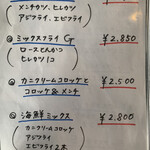 メンチ、ヒレカツ
アジフライ、エビフライ
◎ ミックスフライ G ¥2,850
(ロースとんカツ
ヒレカツ1コ
◎ カニクリームコロッケと ¥2,500
コロッケ&メンチ
◎ 海鮮ミックス ¥2,800
(カニクリームコロッケ
アジフライ
エビフライ2本